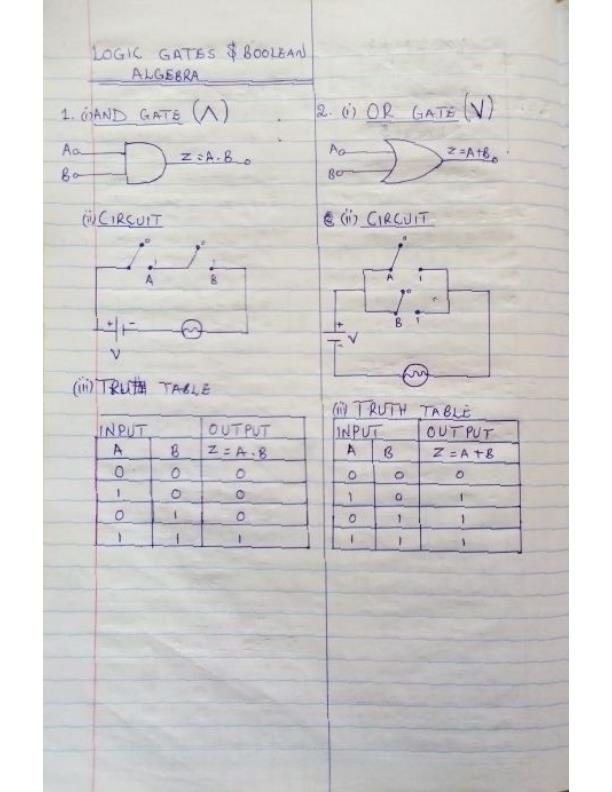 LOGIC GATES & BOOLEAN
ALGEBRA
1. (i) AND GATE (Λ)
A
B
Z = A . B
(ii) CIRCUIT
0
1
A
0
1
B
+ -
V
(iii) TRUTH TABLE
INPUT OUTPUT
A B Z = A . B
0 0 0
1 0 0
0 1 0
1 1 1
2. (i) OR GATE (V)
A
B
Z = A+B
(ii) CIRCUIT
0
A 1
0
B 1
+
-
V
(iii) TRUTH TABLE
INPUT OUTPUT
A B Z = A + B
0 0 0
1 0 1
0 1 1
1 1 1